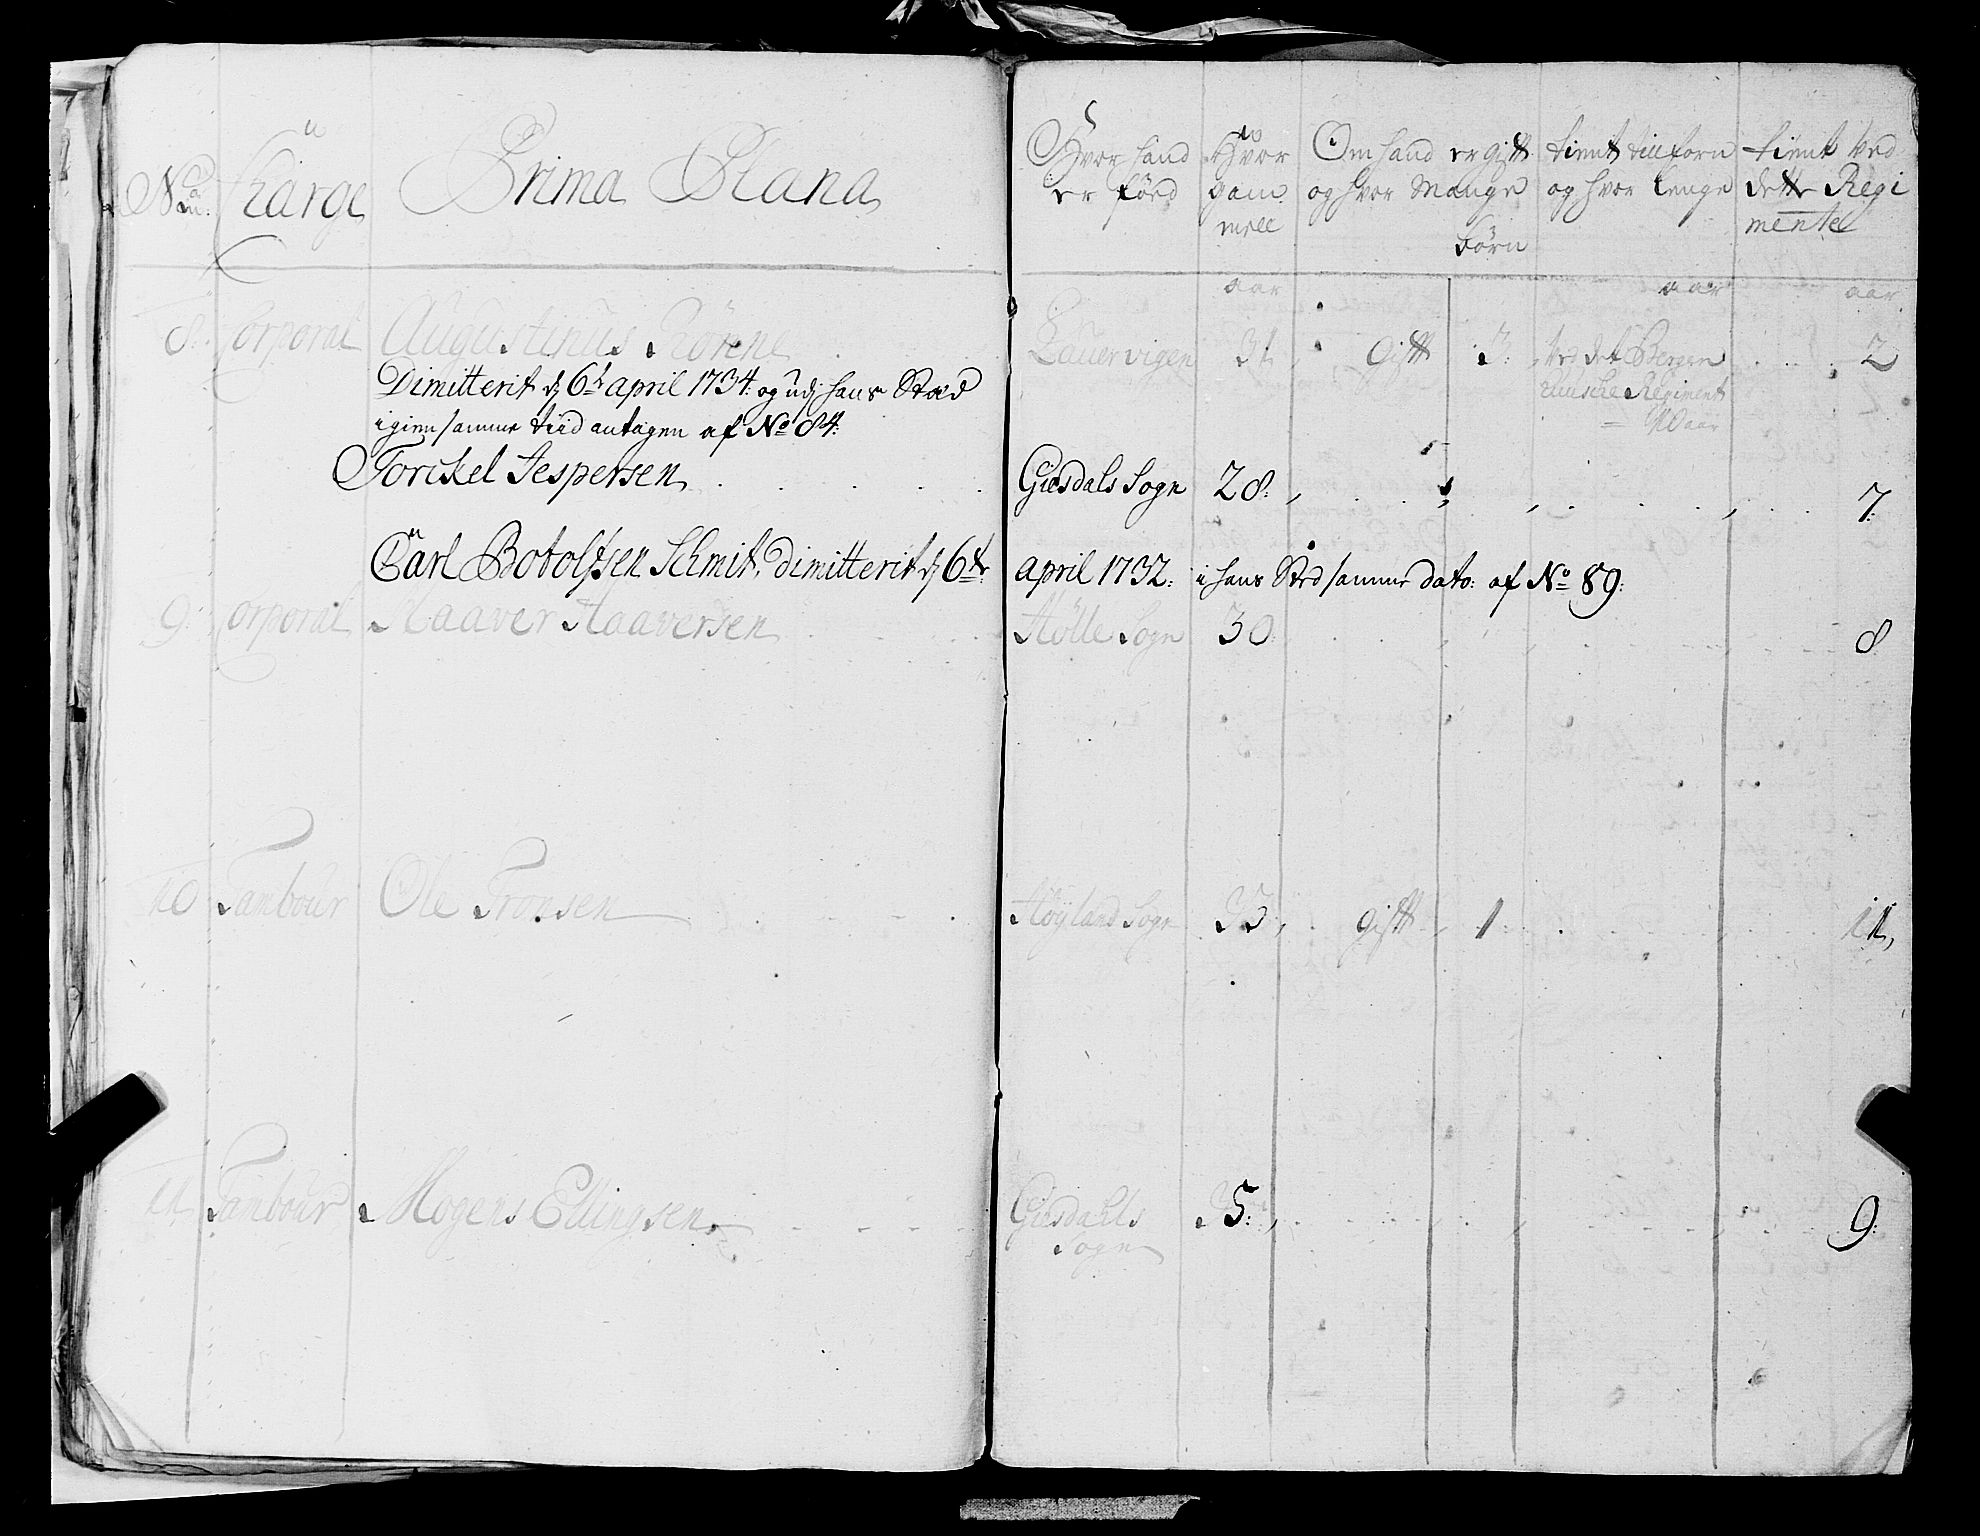 No Charge Prima Plana
Hvor hand er föed
Hvor gammell
Om hand er gift og hvor mange börn
tient tillforn og hvor lenge
tient ved dette Regimente
aar aar aar
8. Corporal Augustinus Rönne Lauervigen 31 gift 3 ved det Bergenhuusiske Regiment 10 aar 2
Dimitterit d 6t april 1734. og udj hans Sted
igien samme tiid antagen af No 84:
Torckel Jespersen Giesdals Sogn 28: 7:
Carl Botolfsen Schmit, dimitterit d 6te april 1732: i hans Sted samme dato: af No 89:
9. Corporal Haaver Haaversen Hölle Sogn 30 8
10 Tambour Ole Tronsen Höyland Sogn 33 gift 1 11,
11 Tambour Mogens Ellingsen Giesdahls Sogn 35: 9: